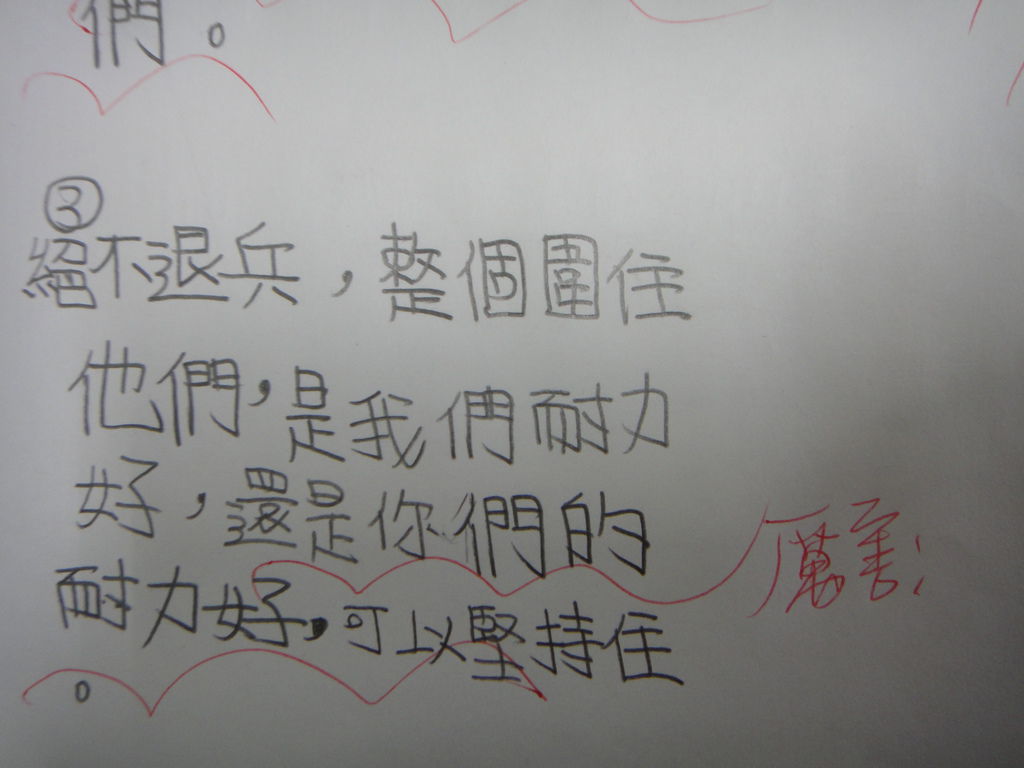 們。
③
絕不退兵，整個圍住
他們，是我們耐力
好，還是你們的
厲害!
耐力好，可以堅持住
。